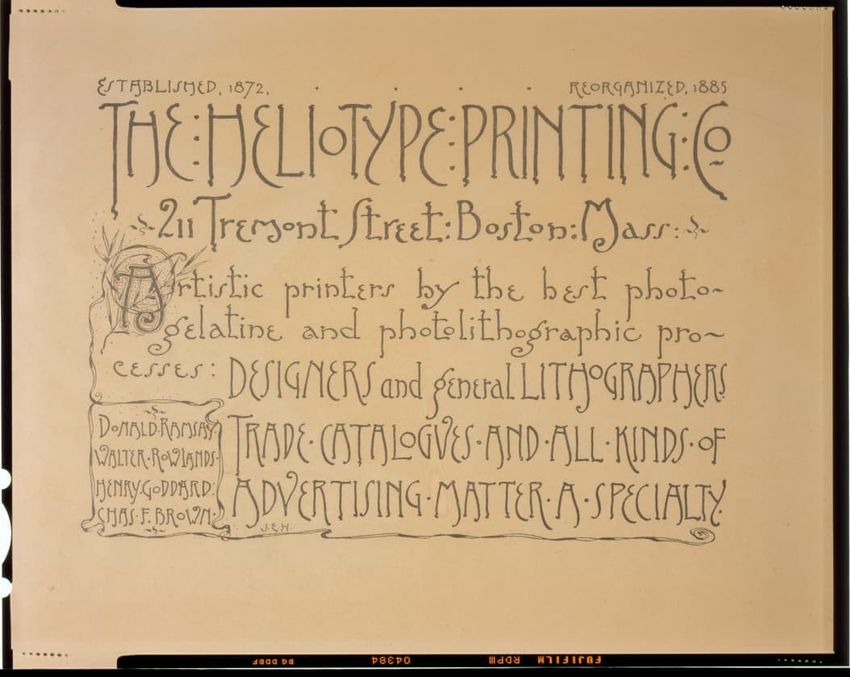 ESTABLISHED, 1872.
REORGANIZED, 1885
THE:HELIOTYPE:PRINTING:Co
211 Tremont Street:Boston:Mass:
Artistic printers by the best photo~
gelatine and photolithographic pro~
cesses: DESIGNERS and general LITHOGRAPHERS
TRADE·CATALOGVES·AND·ALL·KINDS·OF
ADVERTISING·MATTER·A·SPECIALTY.
DONALD·RAMSAY
WALTER·ROWLANDS·
HENRY·GODDARD:
CHAS·F·BROWN·
J.E.H.
04384
RDPIII
FUJIFILM